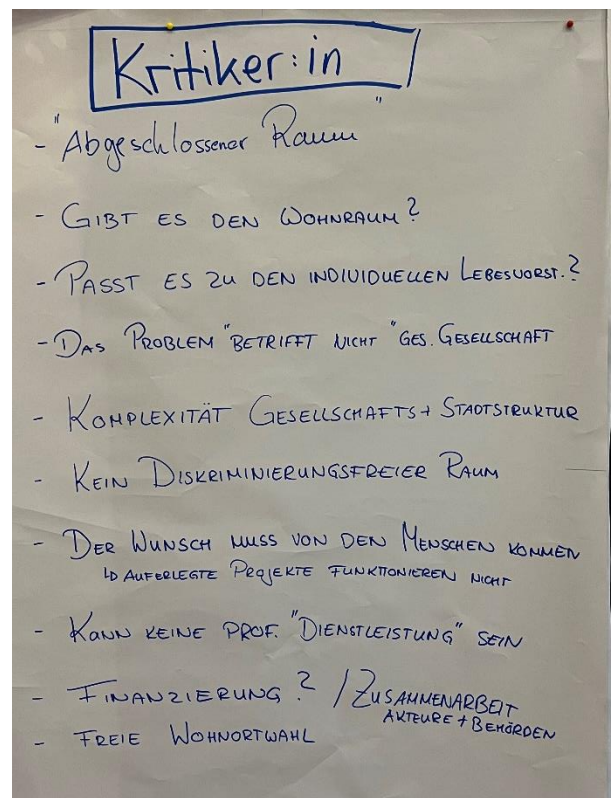 Kritiker:in
- "Abgeschlossener Raum"
- GIBT ES DEN WOHNRAUM?
- PASST ES ZU DEN INDIVIDUELLEN LEBESVORST.?
- DAS PROBLEM "BETRIFFT NICHT" GES. GESELLSCHAFT
- KOMPLEXITÄT GESELLSCHAFTS+ STADTSTRUKTUR
- KEIN DISKRIMINIERUNGSFREIER RAUM
- DER WUNSCH MUSS VON DEN MENSCHEN KOMMEN
↳ AUFERLEGTE PROJEKTE FUNKTIONIEREN NICHT
- KANN KEINE PROF. "DIENSTLEISTUNG" SEIN
- FINANZIERUNG? / ZUSAMMENARBEIT
AKTEURE + BEHÖRDEN
- FREIE WOHNORTWAHL